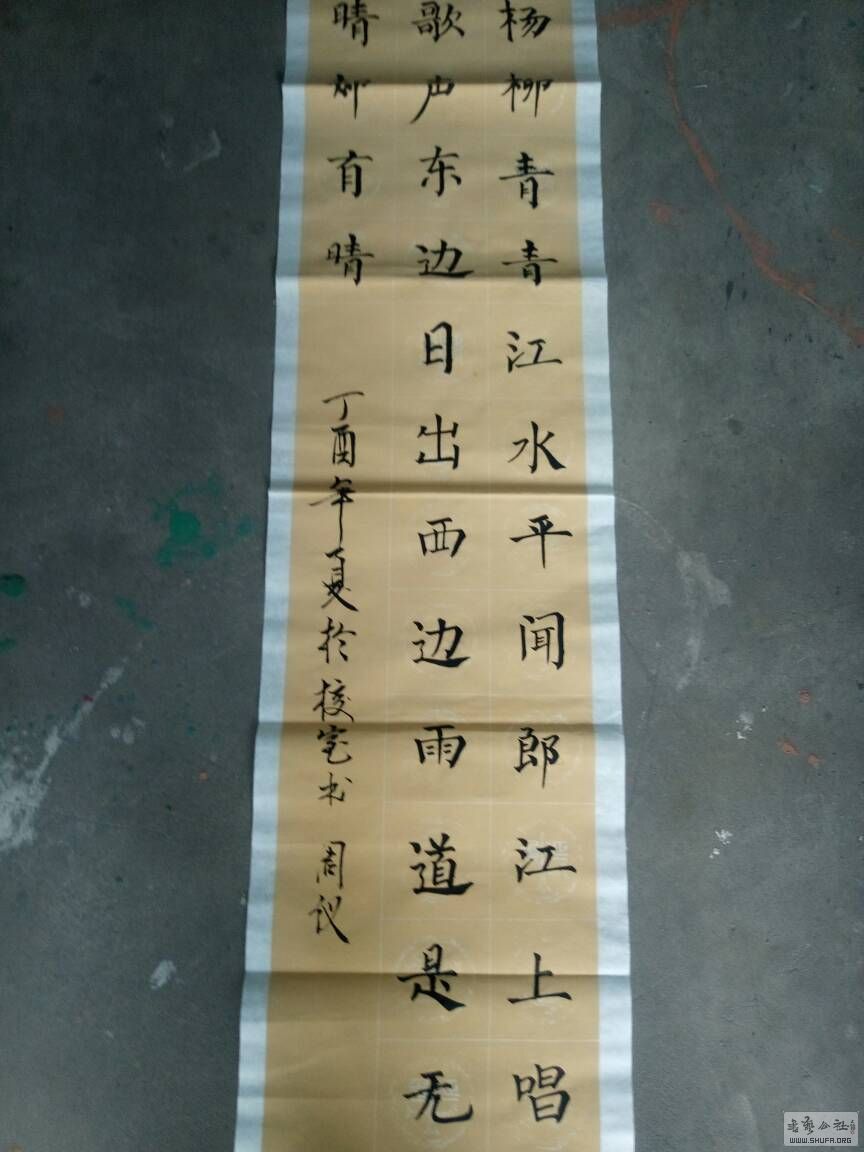 杨柳青青江水平闻郎江上唱
歌声东边日出西边雨道是无
晴却有晴
丁酉年夏於校室书 周议
書藝公社
WWW.SHUFA.ORG